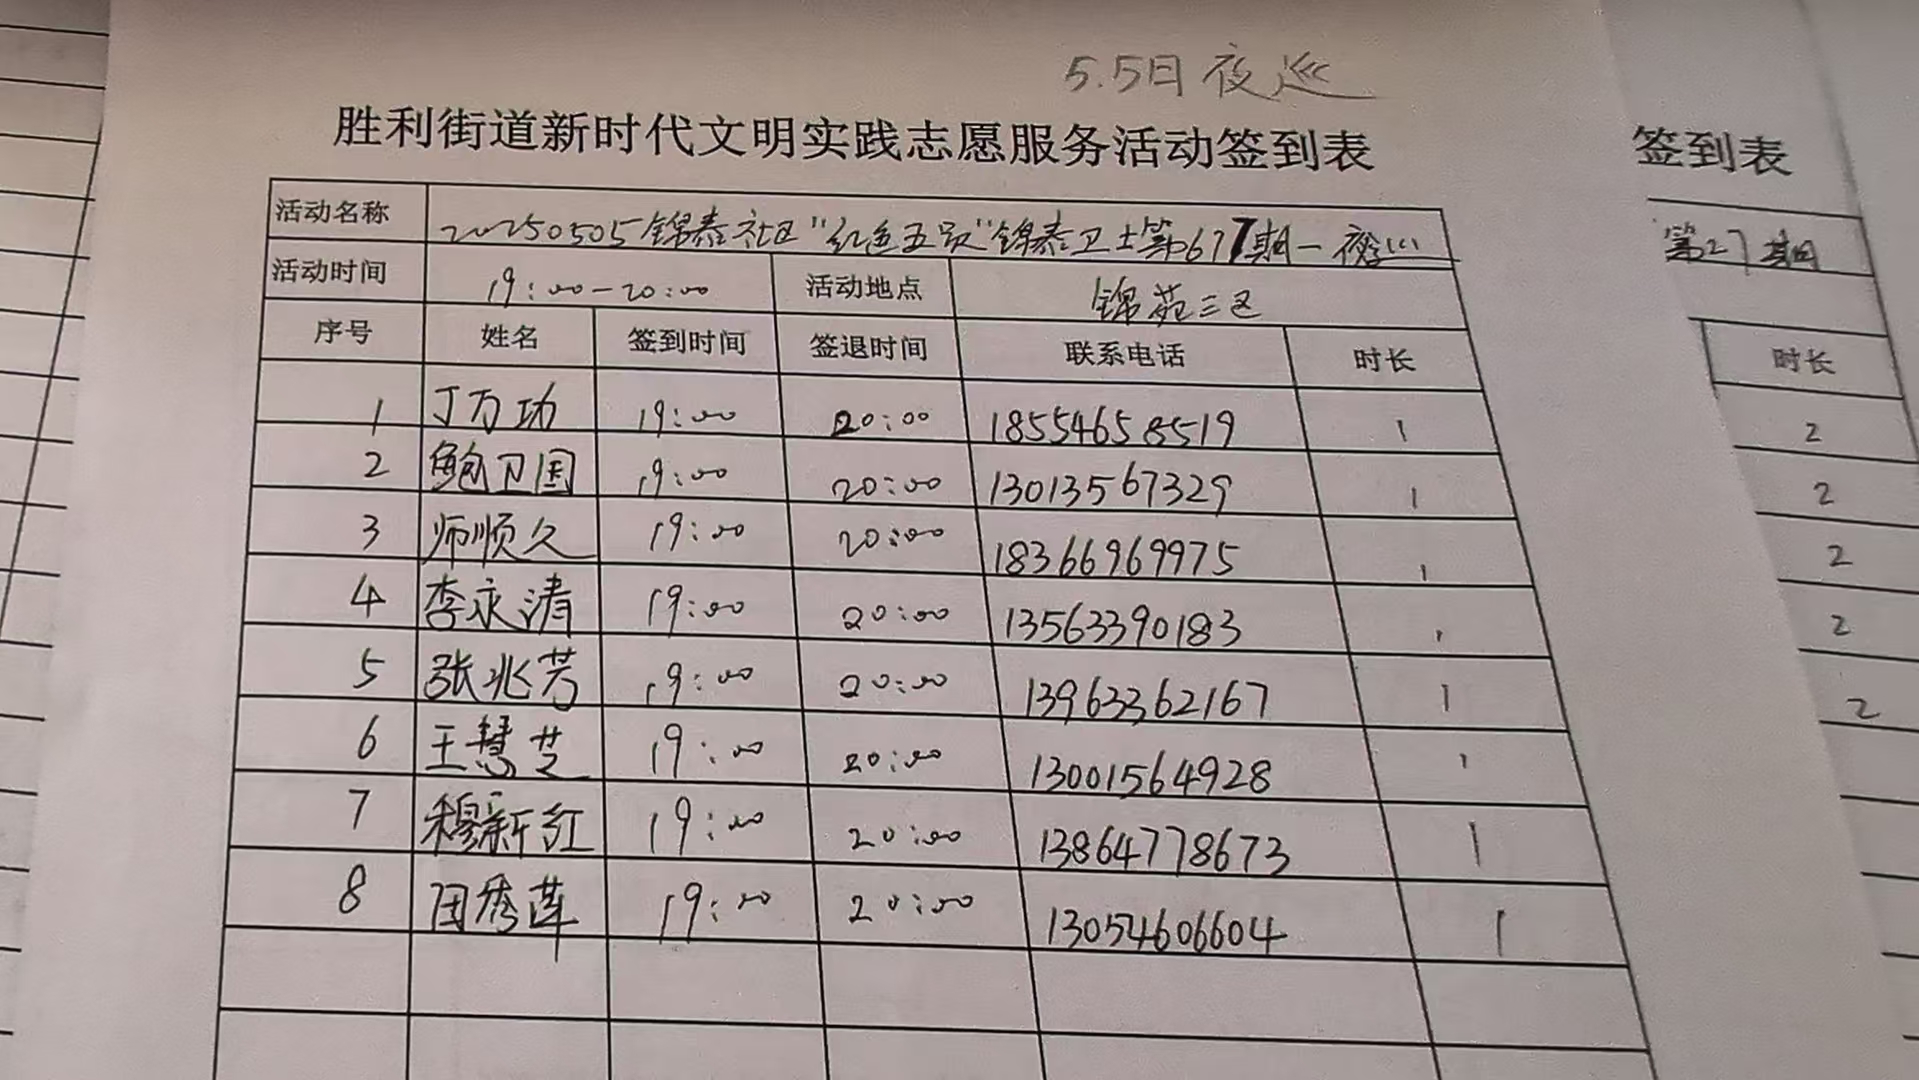 5.5日夜巡
胜利街道新时代文明实践志愿服务活动签到表
活动名称 20250505锦泰社区"红色五员"锦泰卫士第677期一夜巡
活动时间 19:00-20:00 活动地点 锦苑三区
序号 姓名 签到时间 签退时间 联系电话 时长
1 丁万功 19:00 20:00 18554658519 1
2 鲍卫国 19:00 20:00 13013567329 1
3 师顺久 19:00 20:00 18366969975 1
4 李永清 19:00 20:00 13563390183 1
5 张兆芳 19:00 20:00 13963362167 1
6 王慧芝 19:00 20:00 13001564928 1
7 穆新红 19:00 20:00 13864778673 1
8 田秀莲 19:00 20:00 13054606604 1
签到表
第27期
时长
2
2
2
2
2